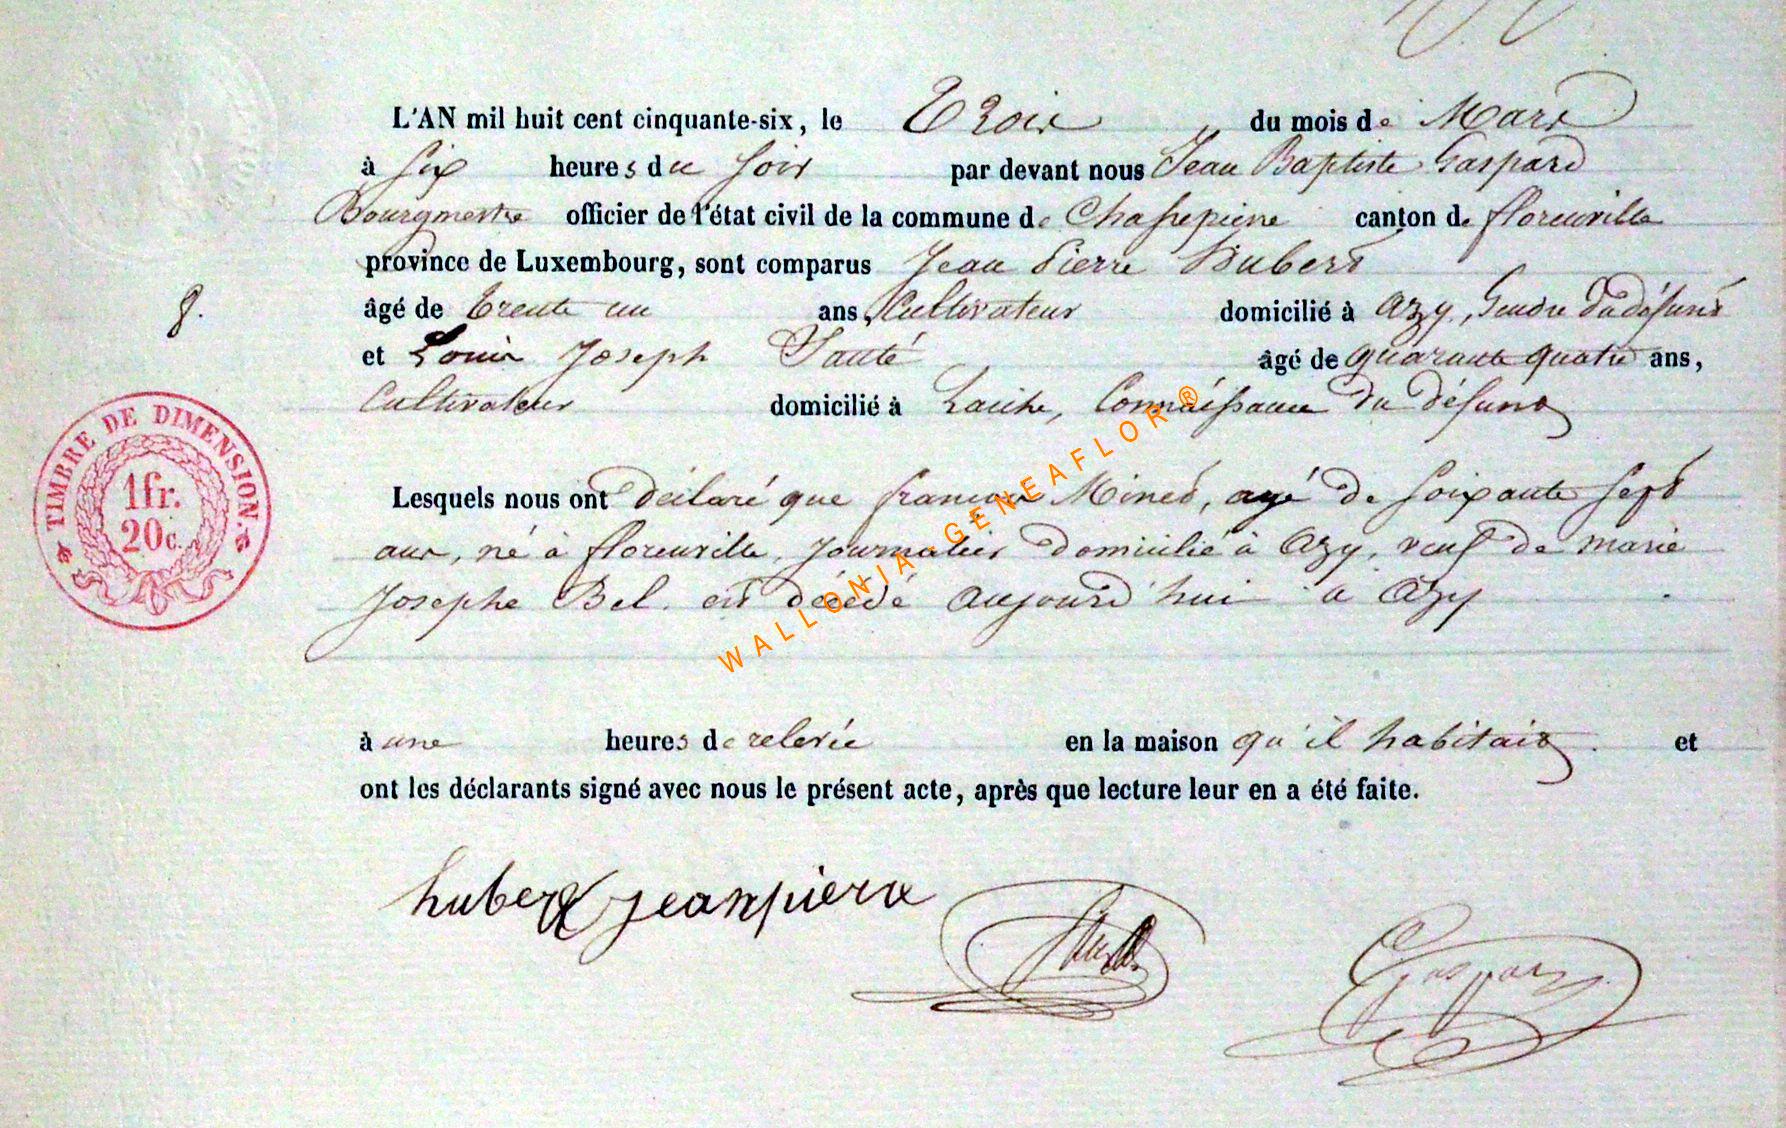 L'AN mil huit cent cinquante-six, le Trois du mois de Mars
à six heures du soir par devant nous Jean Baptiste Gaspard
Bourgmestre officier de l'état civil de la commune de Chassepierre canton de florenville
province de Luxembourg, sont comparus Jean Pierre Hubert
âgé de trente un ans, Cultivateur domicilié à Azy, Gendre du défunt
8.
et Louis Joseph Santé âgé de quarante quatre ans,
Cultivateur domicilié à Laiche, Connaissance du défunt
TIMBRE DE DIMENSION.
1fr.
20c.
Lesquels nous ont déclaré que françois Minet, agé de soixante sept
ans, né à florenville, Journalier domicilié à Azy, veuf de marie
Josephe Bel. est décédé aujourd'hui a Azy
WALLONIA-GENEAFLOR®
à une heures de relevée en la maison qu'il habitait. et
ont les déclarants signé avec nous le présent acte, après que lecture leur en a été faite.
hubert jeanpiere
Gaspard